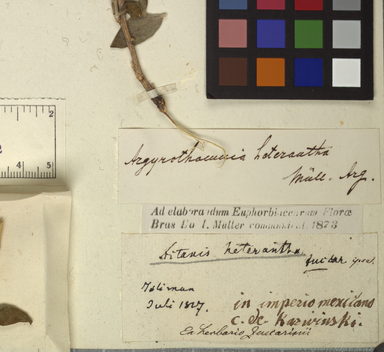 2
4
5
Argyrothamnia heterantha
Müll. Arg.
Ad elaborandum Euphorbiacearum Floræ
Bras Do J. Muller communicat. 1873
Ditaxis heterantha
Zuccar
Toliman
Juli 1827.
in imperio mexicano
C. de Karwinski.
Ex herbario Zuccarinii